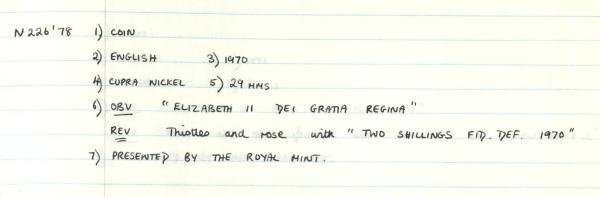 N 226'78 1) COIN
2) ENGLISH 3) 1970
4) CUPRA NICKEL 5) 29 MMS
6) OBV "ELIZABETH II DEI GRATIA REGINA"
REV Thistles and rose with "TWO SHILLINGS FID. DEF. 1970"
7) PRESENTED BY THE ROYAL MINT.